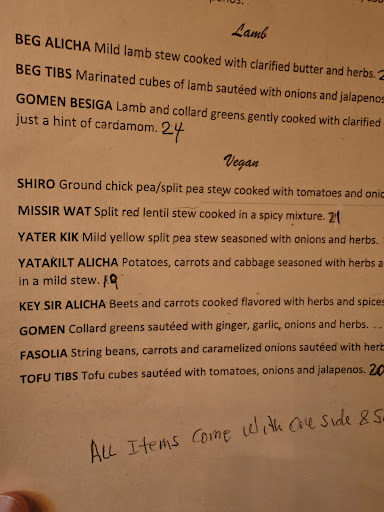 Lamb
BEG ALICHA Mild lamb stew cooked with clarified butter and herbs.
BEG TIBS Marinated cubes of lamb sautéed with onions and jalapenos
GOMEN BESIGA Lamb and collard greens gently cooked with clarified
just a hint of cardamom. 24
Vegan
SHIRO Ground chick pea/split pea stew cooked with tomatoes and
MISSIR WAT Split red lentil stew cooked in a spicy mixture. 21
YATER KIK Mild yellow split pea stew seasoned with onions and herbs.
YATAKILT ALICHA Potatoes, carrots and cabbage seasoned with herbs
in a mild stew. 19
KEY SIR ALICHA Beets and carrots cooked flavored with herbs and spices
GOMEN Collard greens sautéed with ginger, garlic, onions and herbs.
FASOLIA String beans, carrots and caramelized onions sautéed with
TOFU TIBS Tofu cubes sautéed with tomatoes, onions and jalapenos. 20
ALL Items Come With one side &